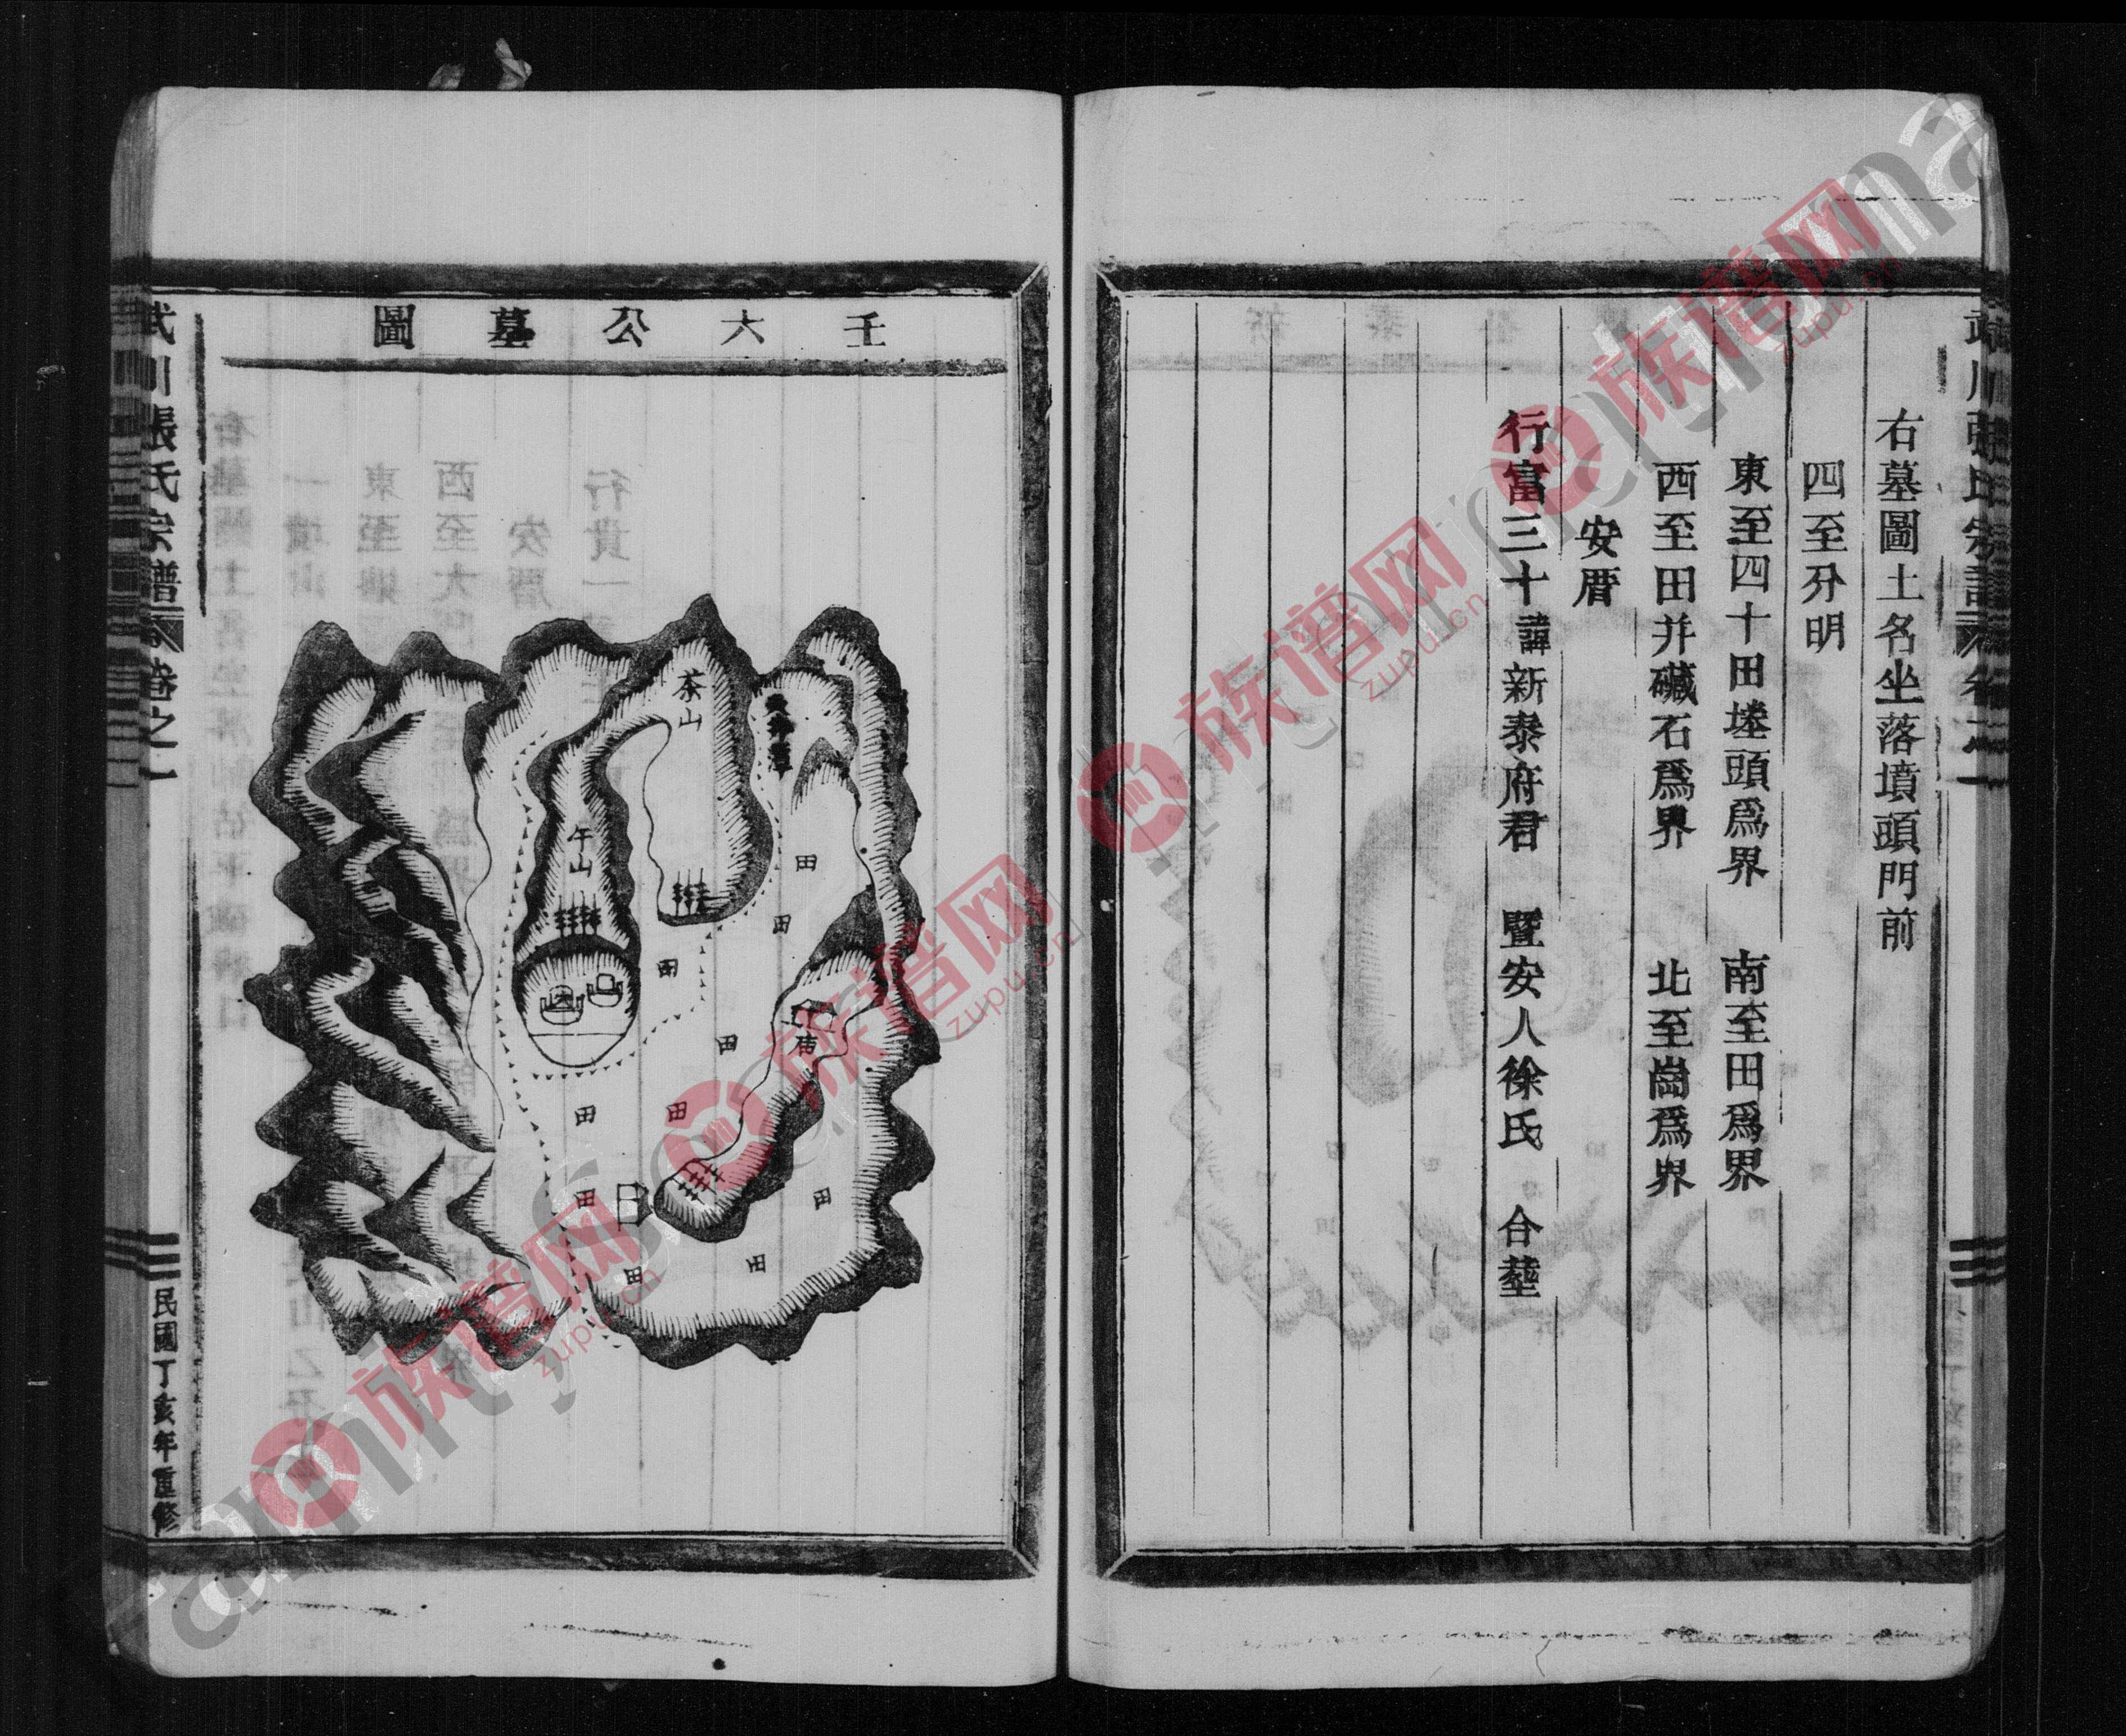 右墓圖土名坐落墳頭門前
四至分明
東至四十田塍頭爲界 南至田爲界
西至田并磩石爲界 北至崗爲界
安厝
行富三十諱新泰府君 暨安人徐氏 合塟
壬六公墓圖
茶山
午山
田
田
田
田
田
田
田
田
田
田
武川張氏宗譜 卷之一
民國丁亥年重修
族谱网
zupu.cn
族谱网
zupu.cn
族谱网
zupu.cn
族谱网
zupu.cn
族谱网
zupu.cn